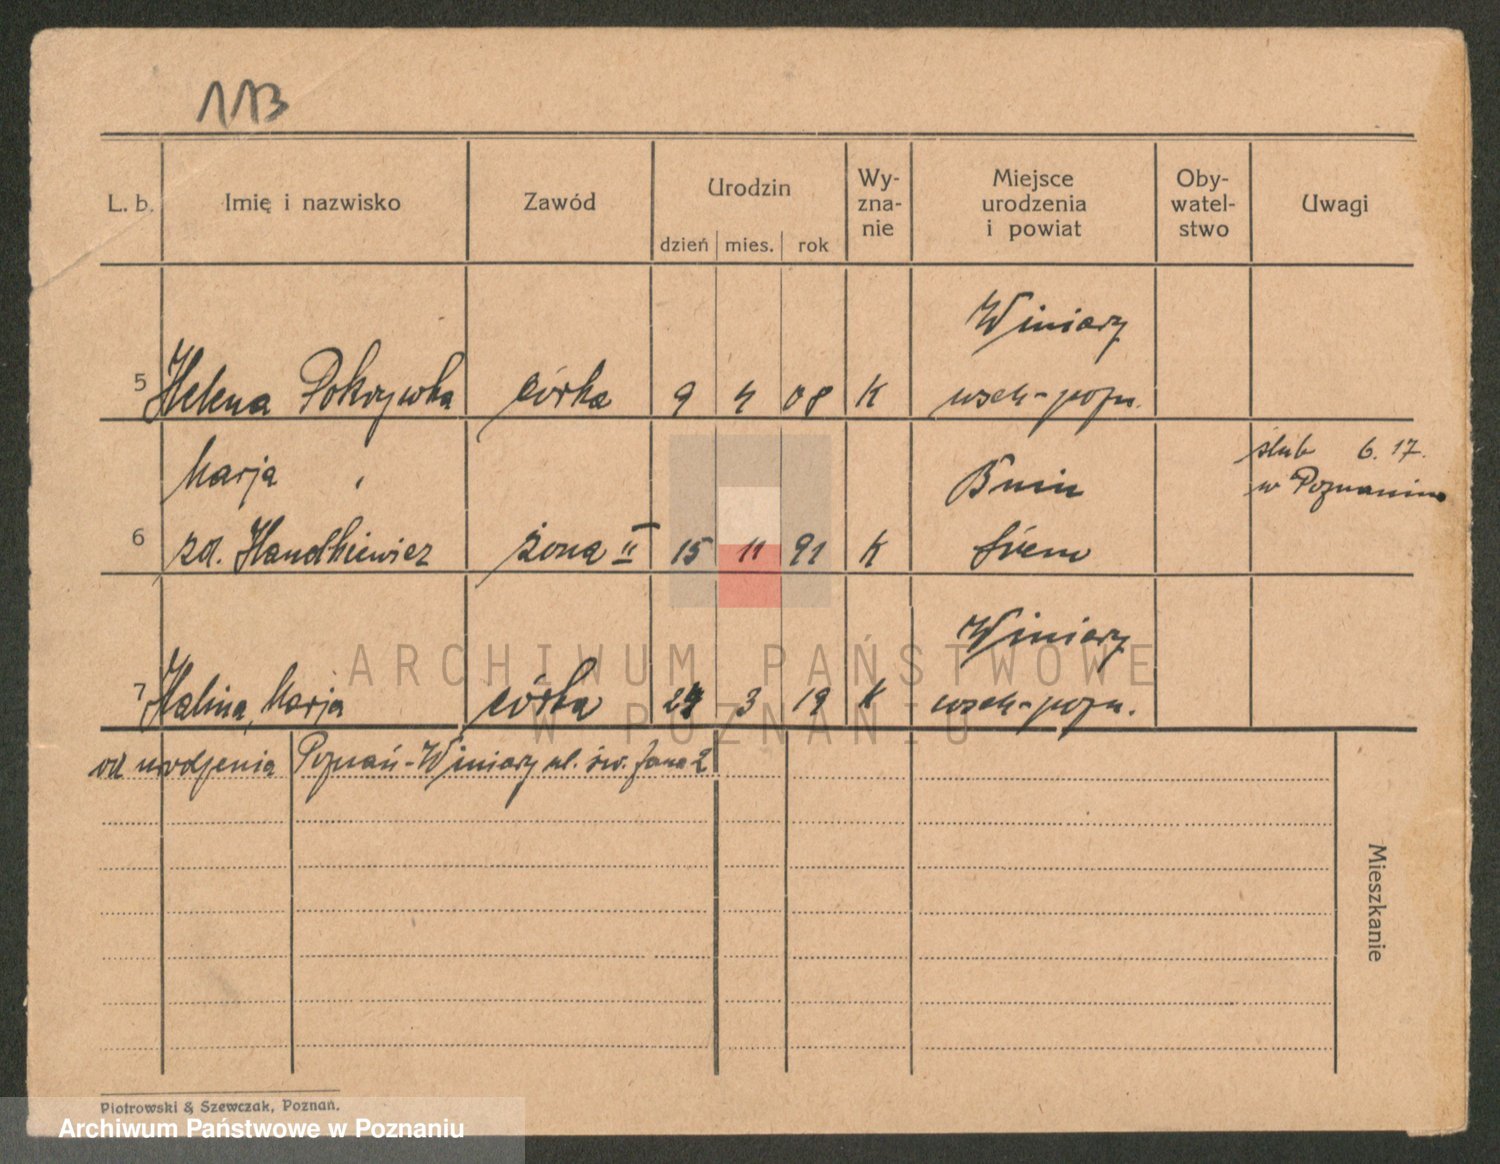 113
L. b. Imię i nazwisko Zawód Urodzin Wy-zna-nie Miejsce urodzenia i powiat Oby-watel-stwo Uwagi
dzień mies. rok
Winiary
5 Helena Pokrzywka córka 9 4 08 K wsch-pozn.
Marja " Bnin ślub 6. 17.
w Poznaniu
6 zd. Handkiewicz żona II 15 11 91 K Śrem
Winiary
7 Halina, Marja córka 24 3 19 K wsch-pozn.
od urodzenia Poznań-Winiary ul. św. Jana 2
Mieszkanie
Piotrowski & Szewczak, Poznań.
ARCHIWUM PAŃSTWOWE
W POZNANIU
Archiwum Państwowe w Poznaniu